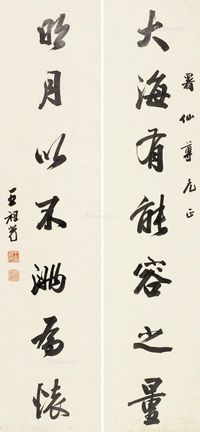 仙尊兄正
大海有能容之量
明月以不滿為懷
王祖